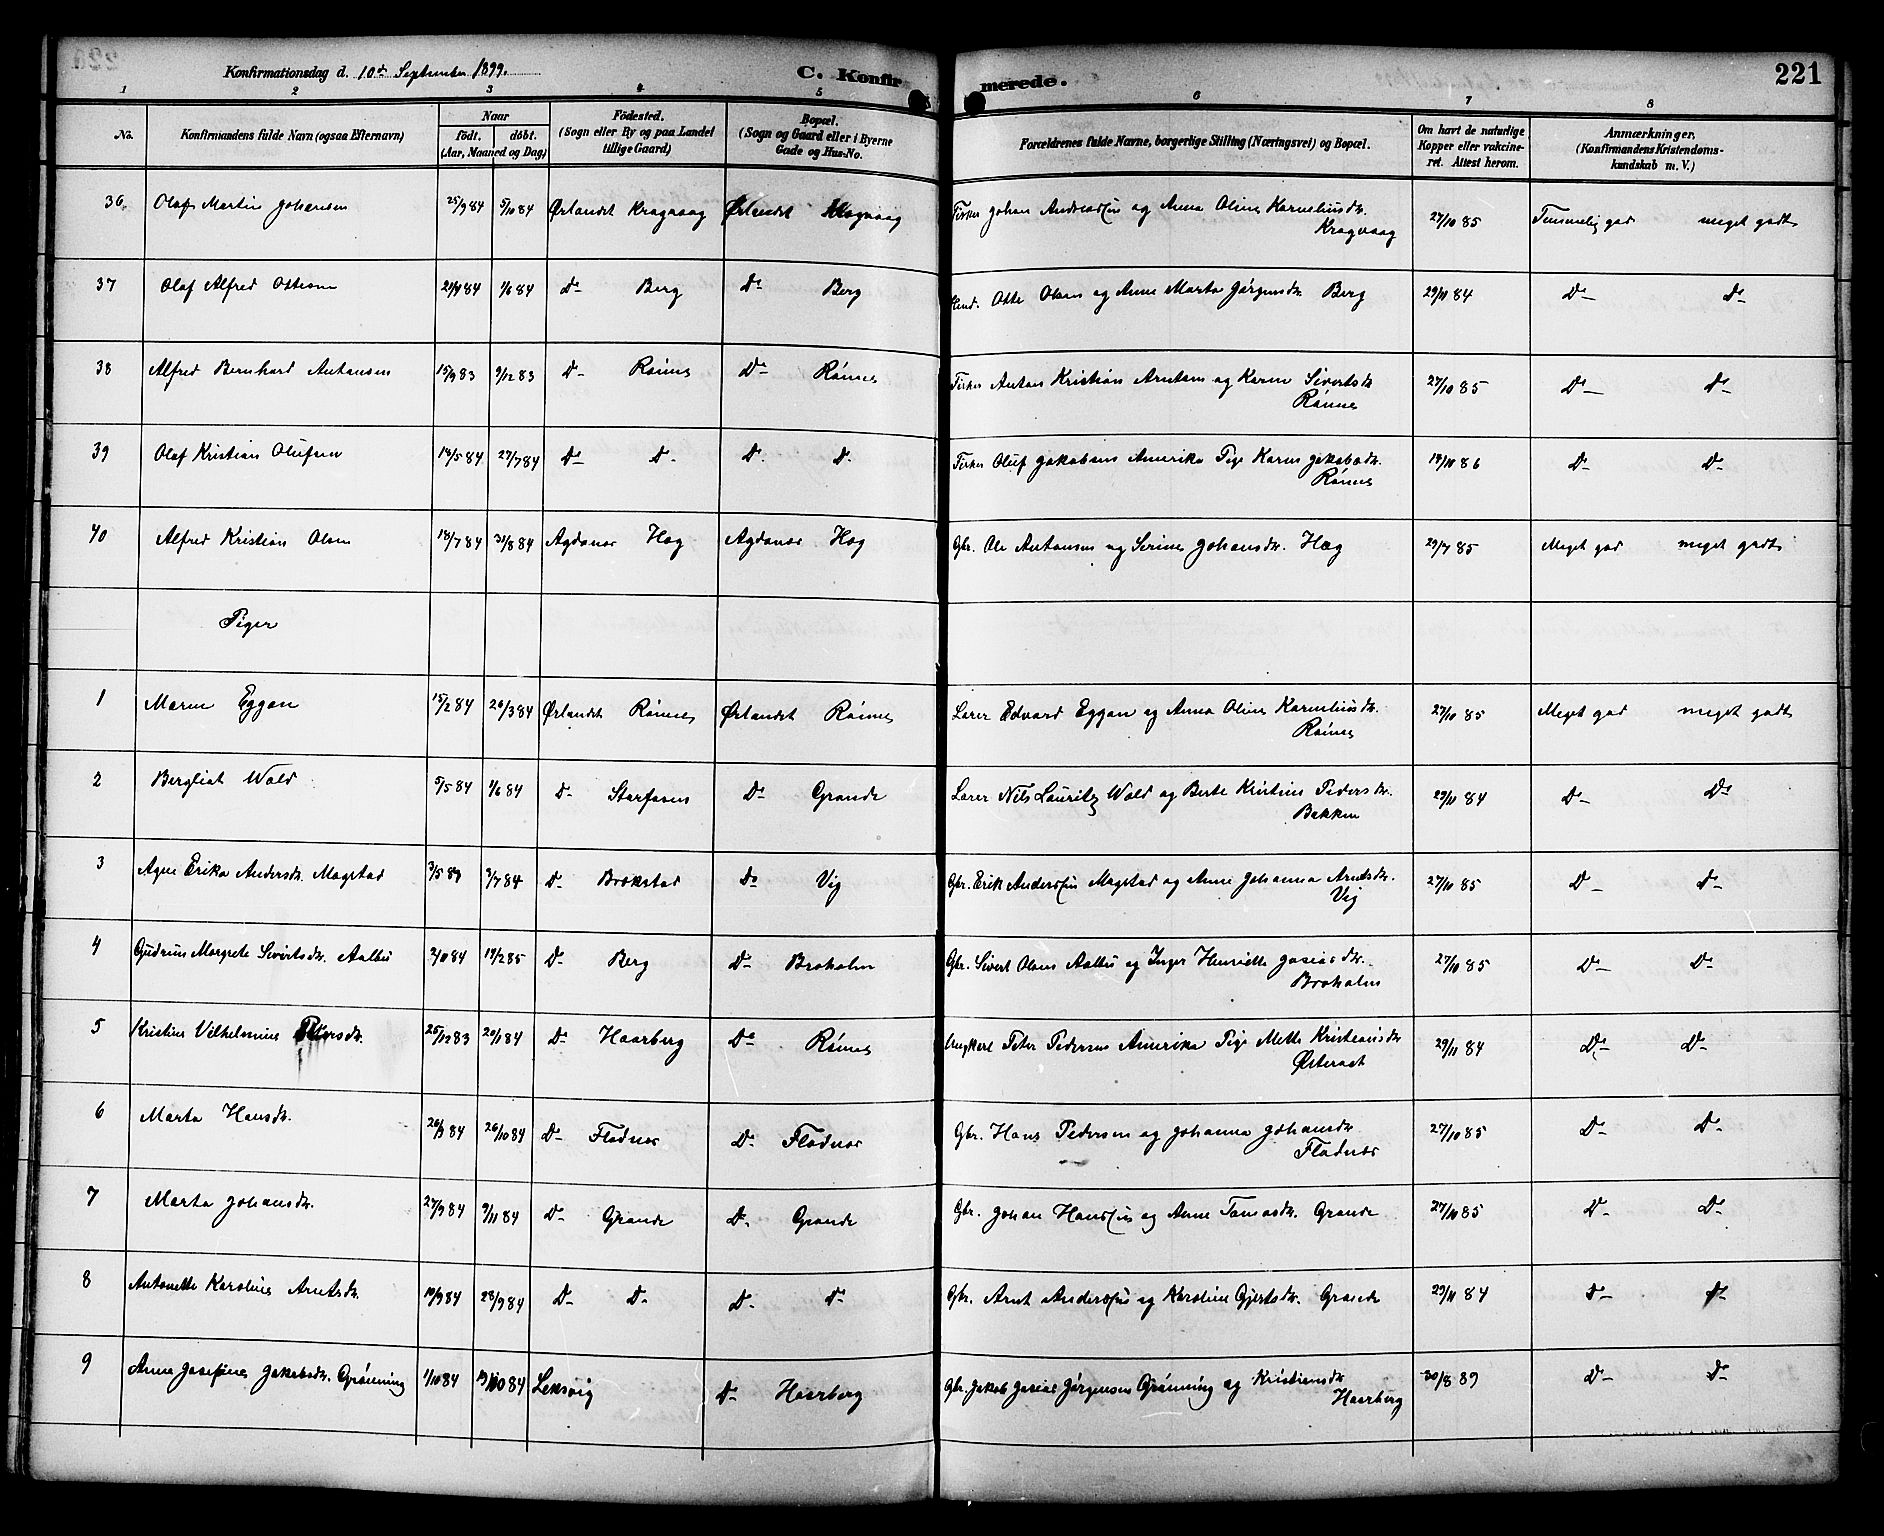 Konfirmationsdag d. 10de September 1899.
C. Konfirmerede.
221
1 2 3 4 5 6 7 8
No.
Konfirmandens fulde Navn (ogsaa Efternavn)
Naar
födt. döbt.
(Aar, Maaned og Dag)
Födested.
(Sogn eller By og paa Landet
tillige Gaard)
Bopæl.
(Sogn og Gaard eller i Byerne
Gade og Hus-No.
Forældrenes fulde Navne, borgerlige Stilling (Næringsvei) og Bopæl.
Om havt de naturlige
Kopper eller vakcine-
ret. Attest herom.
Anmærkninger,
(Konfirmandens Kristendoms-
kundskab m. V.)
36. Olaf Martin Johansen 25/9 84 5/10 84 Ørlandet Kragvaag Ørlandet Kragvaag Fisker Johan Andreassen og Anna Oline Korneliusdr. Kragvaag 27/10 85 Temmelig god meget godt
37 Olaf Alfred Ottesen 21/4 84 1/6 84 Do Berg Do Berg Otte Olsen og Anne Marta Jørgensdr. Berg 29/11 84 Do Do
38 Alfred Bernhard Antonsen 15/9 83 9/12 83 Do Rønne Do Rønne Fisker Anton Kristian Arntsen og Karen Sivertsdr. Rønne 27/10 85 Do Do
39 Olaf Kristian Olufsen 14/5 84 27/7 84 Do Do Do Do Fisker Oluf Jakobsen Amerika Pige Karen Jakobsdr. Rønne 14/11 86 Do Do
40 Alfred Kristian Olsen 18/7 84 31/8 84 Agdanæs Hæg Agdanæs Hæg Gbr. Ole Antonsen og Serine Johansdr. Hæg 29/7 85 Meget god meget godt
Piger
1 Maren Eggan 15/2 84 26/3 84 Ørlandet Rønne Ørlandet Rønne Lærer Edvard Eggan og Anna Oline Korneliusdr. Rønne 27/10 85 Meget god meget godt
2 Bergliot Wold 5/5 84 1/6 84 Do Do Grande Lærer Nils Lauritz Wold og Berte Kristine Pedersdr. Bakken 29/11 84 Do Do
3 Erika Andersdr. Mogstad 3/5 84 3/7 84 Do Brækstad Do Vig Gbr. Erik Anderssen Mogstad og Anne Johanna Arntsdr. Vig 27/10 85 Do Do
4 Gudrun Margrete Sivertsdr. Aalbu 2/10 84 14/2 85 Do Berg Do Broholm Gbr. Sivert Olsen Aalbu og Inger Henriette Josiasdr. Broholm 27/10 85 Do Do
5 Kristine Vilhelmine Petersdr. 25/12 83 20/1 84 Do Haarberg Do Rønne Ungkarl Peter Pedersen Amerika Pige Mette Kristiansdr. Østeraat 29/11 84 Do Do
6 Marta Hansdr. 26/9 84 26/10 84 Do Flødnæs Do Flødnæs Gbr. Hans Pedersen og Johanna Johansdr. Flødnæs 27/10 85 Do Do
7 Marta Johansdr. 27/9 84 9/11 84 Do Grande Do Grande Gbr. Johan Hanssen og Anne Tomasdr. Grande 27/10 85 Do Do
8 Antonette Karoline Arntsdr. 19/9 84 28/9 84 Do Do Do Do Gbr. Arnt Anderssen og Karoline Gjertsdr. Grande 29/11 84 Do Do
9 Anne Josefine Jakobsdr. Grønning 1/10 84 19/10 84 Leksvig Do Haarberg Gbr. Jakob Josias Jørgensen Grønning og Kristiansdr. Haarberg 30/8 89 Do Do